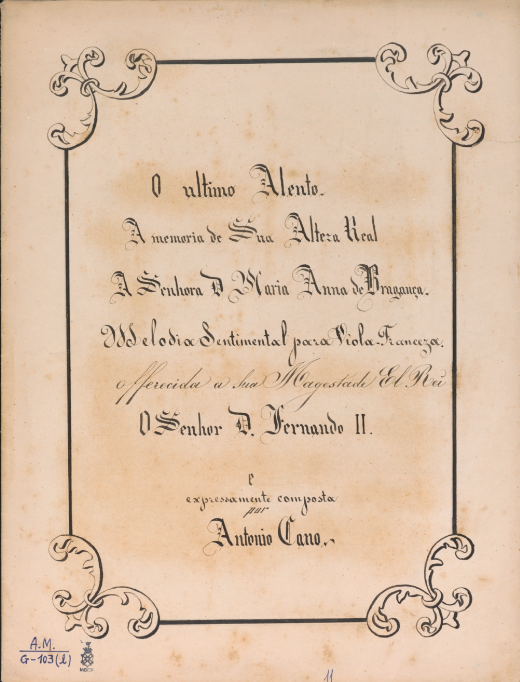 O ultimo Alento.
A memoria de Sua Alteza Real
A Senhora D Maria Anna de Bragança.
Melodia Sentimental para Viola-Franceza.
offerecida a sua Magestade El Rei
O Senhor D. Fernando II.
e
expressamente composta
por
Antonio Cano.
A.M.
G-103(l)
11